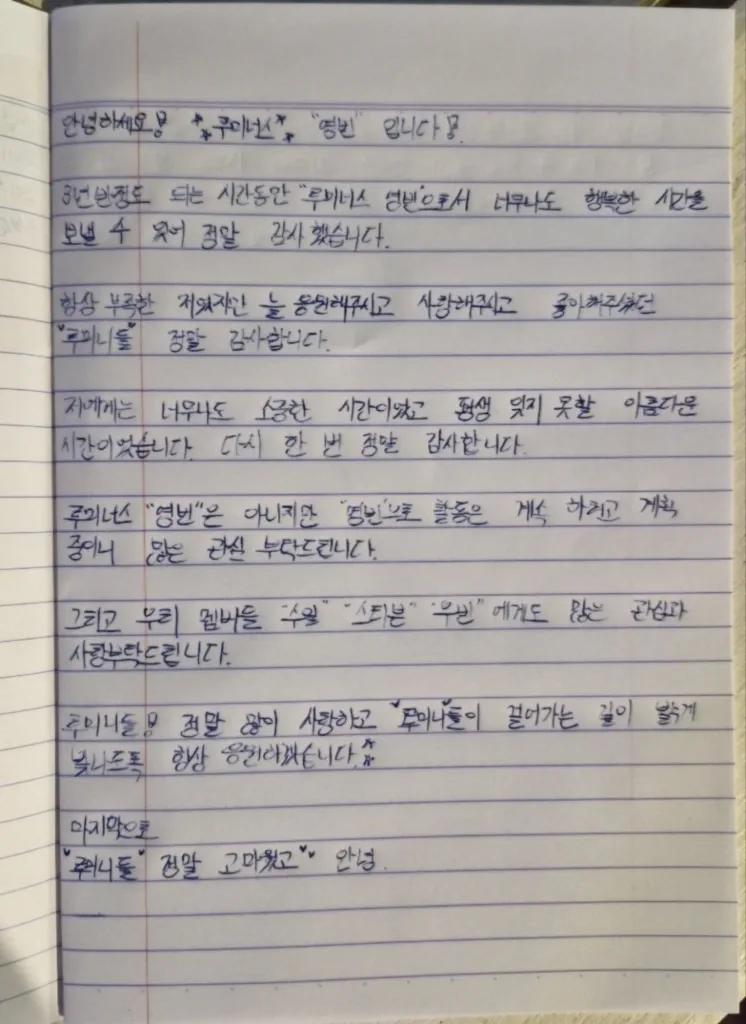 안녕하세요! *루미너스* "영빈" 입니다!
3년 반정도 되는 시간동안 "루미너스 영빈"으로서 너무나도 행복한 시간을
보낼 수 있어 정말 감사했습니다.
항상 부족한 저였지만 늘 응원해주시고 사랑해주시고 좋아해주셨던
"루미니들" 정말 감사합니다.
저에게는 너무나도 소중한 시간이었고 평생 잊지 못할 아름다운
시간이었습니다. 다시 한 번 정말 감사합니다.
루미너스 "영빈"은 아니지만 "영빈"으로 활동은 계속 하려고 계획
중이니 많은 관심 부탁드립니다.
그리고 우리 멤버들 "수일" "스티븐" "우빈"에게도 많은 관심과
사랑부탁드립니다.
루미니들! 정말 많이 사랑하고 "루미니"들이 걸어가는 길이 밝게
빛나도록 항상 응원하겠습니다.
마지막으로
"루미니들" 정말 고마웠고 안녕.